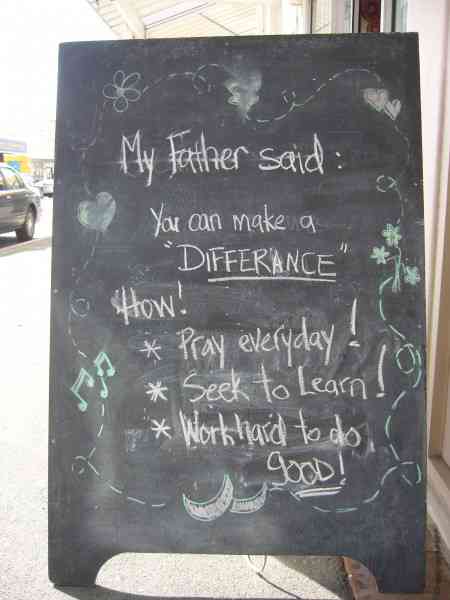 My Father said:
You can make a
"DIFFERANCE"
How!
* Pray everyday!
* Seek to Learn!
* Work hard to do
gooD!